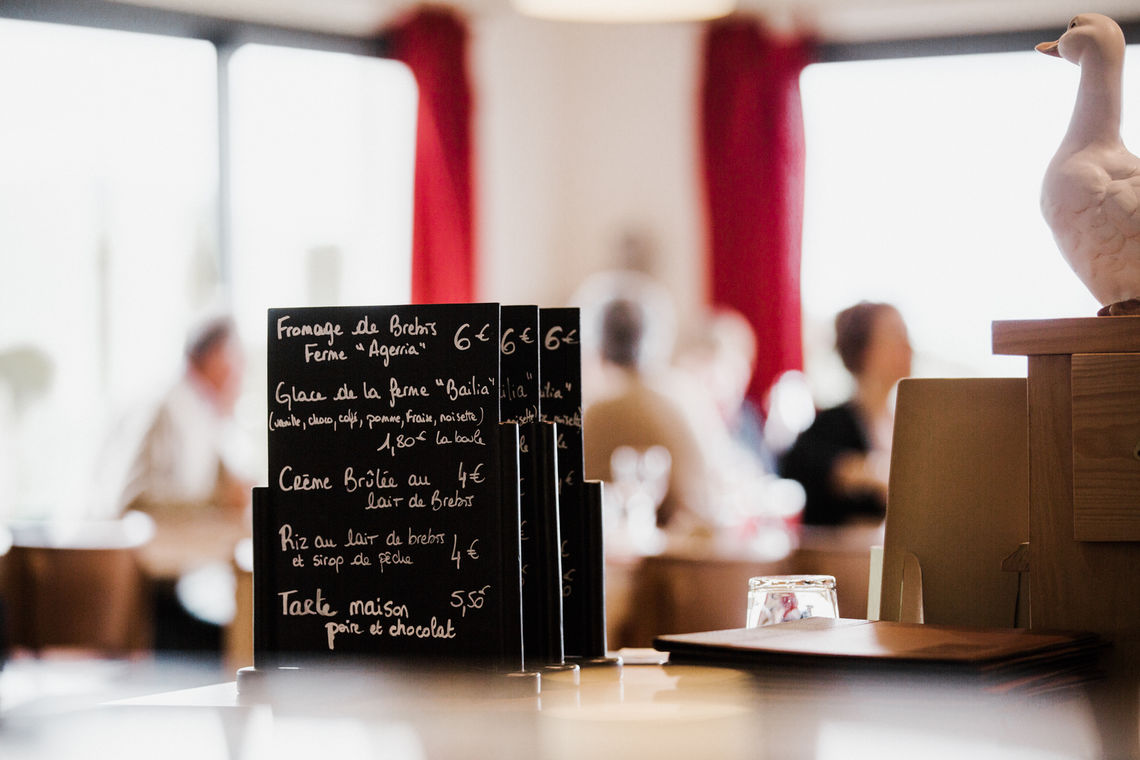 Fromage de Brebis 6€
Ferme "Agerria"
Glace de la ferme "Bailia"
(vanille, choco, café, pomme, fraise, noisette)
1,80€ la boule
Crème Brûlée au 4€
lait de Brebis
Riz au lait de brebis
et sirop de pêche 4€
Tarte maison 5,50€
poire et chocolat
6€
ilia"
6€
ailia"